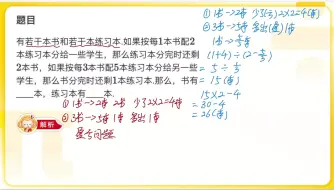 题目
有若干本书和若干本练习本.如果按每1本书配2
本练习本分给一些学生，那么练习本分完时还剩
2本书，如果按每3本书配5本练习本分给另一些
学生，那么书分完时还剩1本练习本.那么，书有
____本，练习本有____本.
解析
① 1书→2练 2书 少了2×2=4练
② 3书→5练 1练 多出1练
盈亏问题
① 1书→2练 少了2×2=4练
② 3书→5练 多出1练
1书→5/3练
(1+4)÷(2-5/3)
=5÷1/3
=15(本)
15×2-4
=30-4
=26(本)